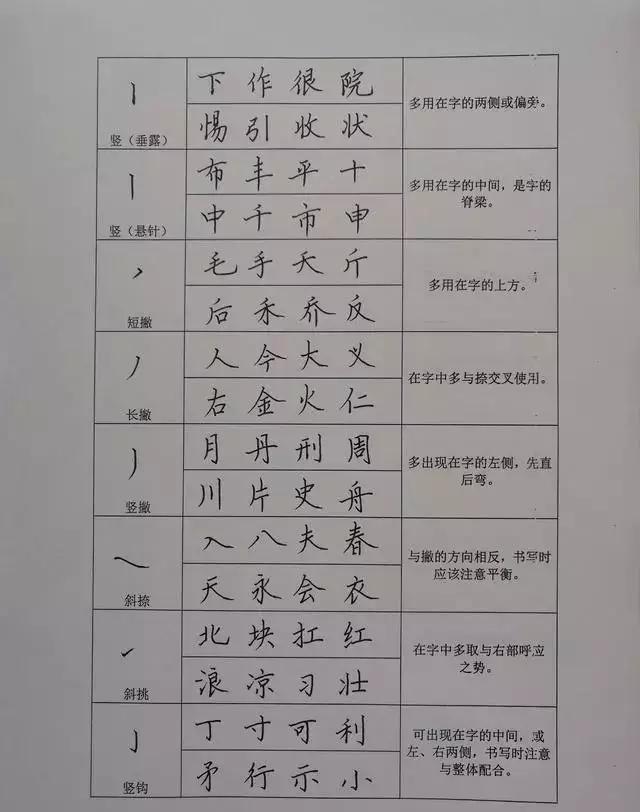 下作很院
惕引收状
竖（垂露）
多用在字的两侧或偏旁。
布丰平十
中千市申
竖（悬针）
多用在字的中间，是字的
脊梁。
毛手夭斤
后禾乔反
短撇
多用在字的上方。
人今大义
右金火仁
长撇
在字中多与捺交叉使用。
月丹刑周
川片史舟
竖撇
多出现在字的左侧，先直
后弯。
入八夫春
天永会衣
斜捺
与撇的方向相反，书写时
应该注意平衡。
北块扛红
浪凉习壮
斜挑
在字中多取与右部呼应
之势。
丁寸可利
矛行示小
竖钩
可出现在字的中间，或
左、右两侧，书写时注意
与整体配合。